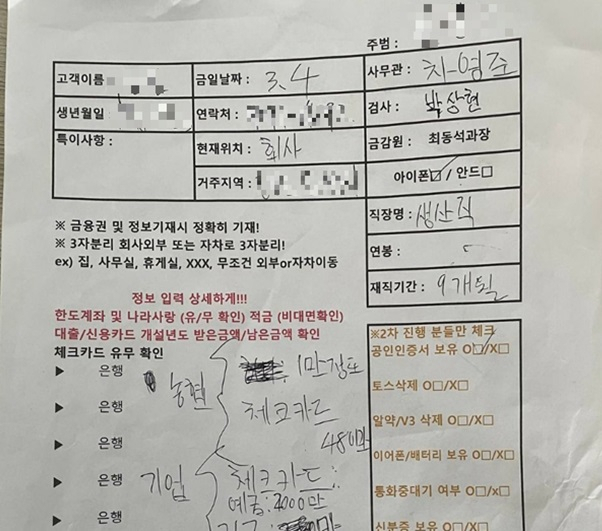 주범 :
고객이름
금일날짜 : 3.4
사무관 : 차영주
생년월일
연락처 :
검사 : 박상현
특이사항 :
현재위치 : 회사
금감원 : 최동석과장
거주지역 :
아이폰☑ / 안드☐
직장명 : 생산직
연봉 :
재직기간 : 9개월
※ 금융권 및 정보기재시 정확히 기재!
※ 3자분리 회사외부 또는 자차로 3자분리!
ex) 집, 사무실, 휴게실, XXX, 무조건 외부or자차이동
정보 입력 상세하게!!!
한도계좌 및 나라사랑 (유/무 확인) 적금 (비대면확인)
대출/신용카드 개설년도 받은금액/남은금액 확인
체크카드 유무 확인
▶ 은행 농협 1만정도
▶ 은행 체크카드
▶ 은행 480만
▶ 은행 기업 체크카드:
예금:2000만
▶ 은행
※2차 진행 분들만 체크
공인인증서 보유 O☐/X☐
토스삭제 O☐/X☐
알약/V3 삭제 O☐/X☐
이어폰/배터리 보유 O☐/X☐
통화중대기 여부 O☐/X☐
신분증 보유 O☐/X☐